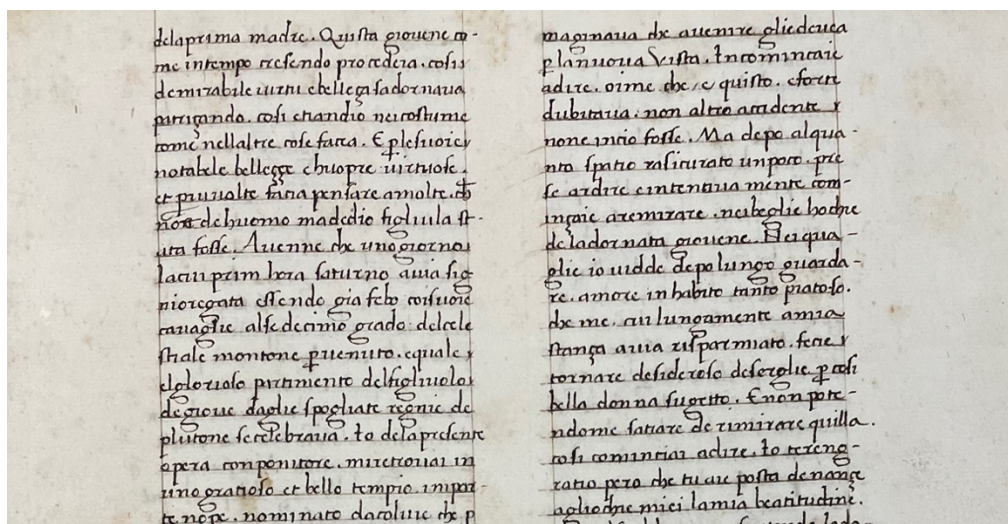 delaprima madre. Quista giouene co-
me intempo cresendo procedeia. cosi
demirabile uirtu ebelleça sadornaua
parnçando. cosi etiandio neicostume
come nellaltre cose facea. E plesuoie
notabele bellecçe ehuopre uirtuose.
et piuuolte facia pensare amolte. ch
non dehuomo madedio figluila st-
ata fosse. Auenne che uno giorno
lacui prim hora saturno auia sig-
nioregata essendo gia febo coisuoie
cauaglie alsedecimo grado. delcele
stiale montone p uenuto. equale
elglorioso partimento delfigluolo
degioue daglie spogliate regnie de
plutone secelebraua. Io delapresente
opera conponitore. miretrouai in
uno gratioso et bello tempio. inpar-
tenope. nominato dacoluie che p
maginaua che auenire gliedeuea
p lanuoua Vista. Incominçaie
adire. oime che e quisto. eforte
dubitaua. non altro accidente
none incio fosse. Ma depo alqua-
nto spatio rasicurato unpoco. pre
se ardire eintentiua mente com-
inçaie aremirare. neibeglie hochie
deladornata giouene. Neiqua-
glie io uidde depo lungo guarda-
re. amore in habito tanto piatoso.
che me. cui lungamente amia
stança auia risparmiato. fece
tornare desideroso deserglie p cosi
bella donna sugetto. E non pote-
ndome satiare de rimirare quilla.
cosi cominciai adire. Io tereng-
ratio pero che tu aie posta denançe
aglioche miei lamia beatitudine.